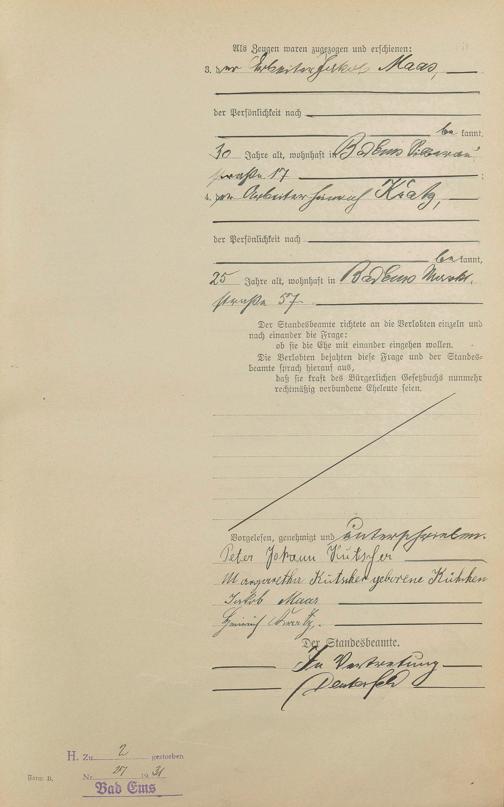 Als Zeugen waren zugezogen und erschienen:
3. der Arbeiter Jakob Maas,
der Persönlichkeit nach
be kannt,
30 Jahre alt, wohnhaft in Bad Ems
straße 17 ;
4. der Arbeiter Heinrich Kratz,
der Persönlichkeit nach
be kannt,
25 Jahre alt, wohnhaft in Bad Ems Markt-
straße 57.
Der Standesbeamte richtete an die Verlobten einzeln und
nach einander die Frage:
ob sie die Ehe mit einander eingehen wollen.
Die Verlobten bejahten diese Frage und der Standes-
beamte sprach hierauf aus,
daß sie kraft des Bürgerlichen Gesetzbuchs nunmehr
rechtmäßig verbundene Eheleute seien.
Vorgelesen, genehmigt und unterschrieben.
Peter Johann Kutscher
Margaretha Kutscher geborene
Jakob Maas
Heinrich Kratz.
Der Standesbeamte.
In Vertretung
H. Zu 2 gestorben
Form. B.
Nr. 27 1931
Bad Ems